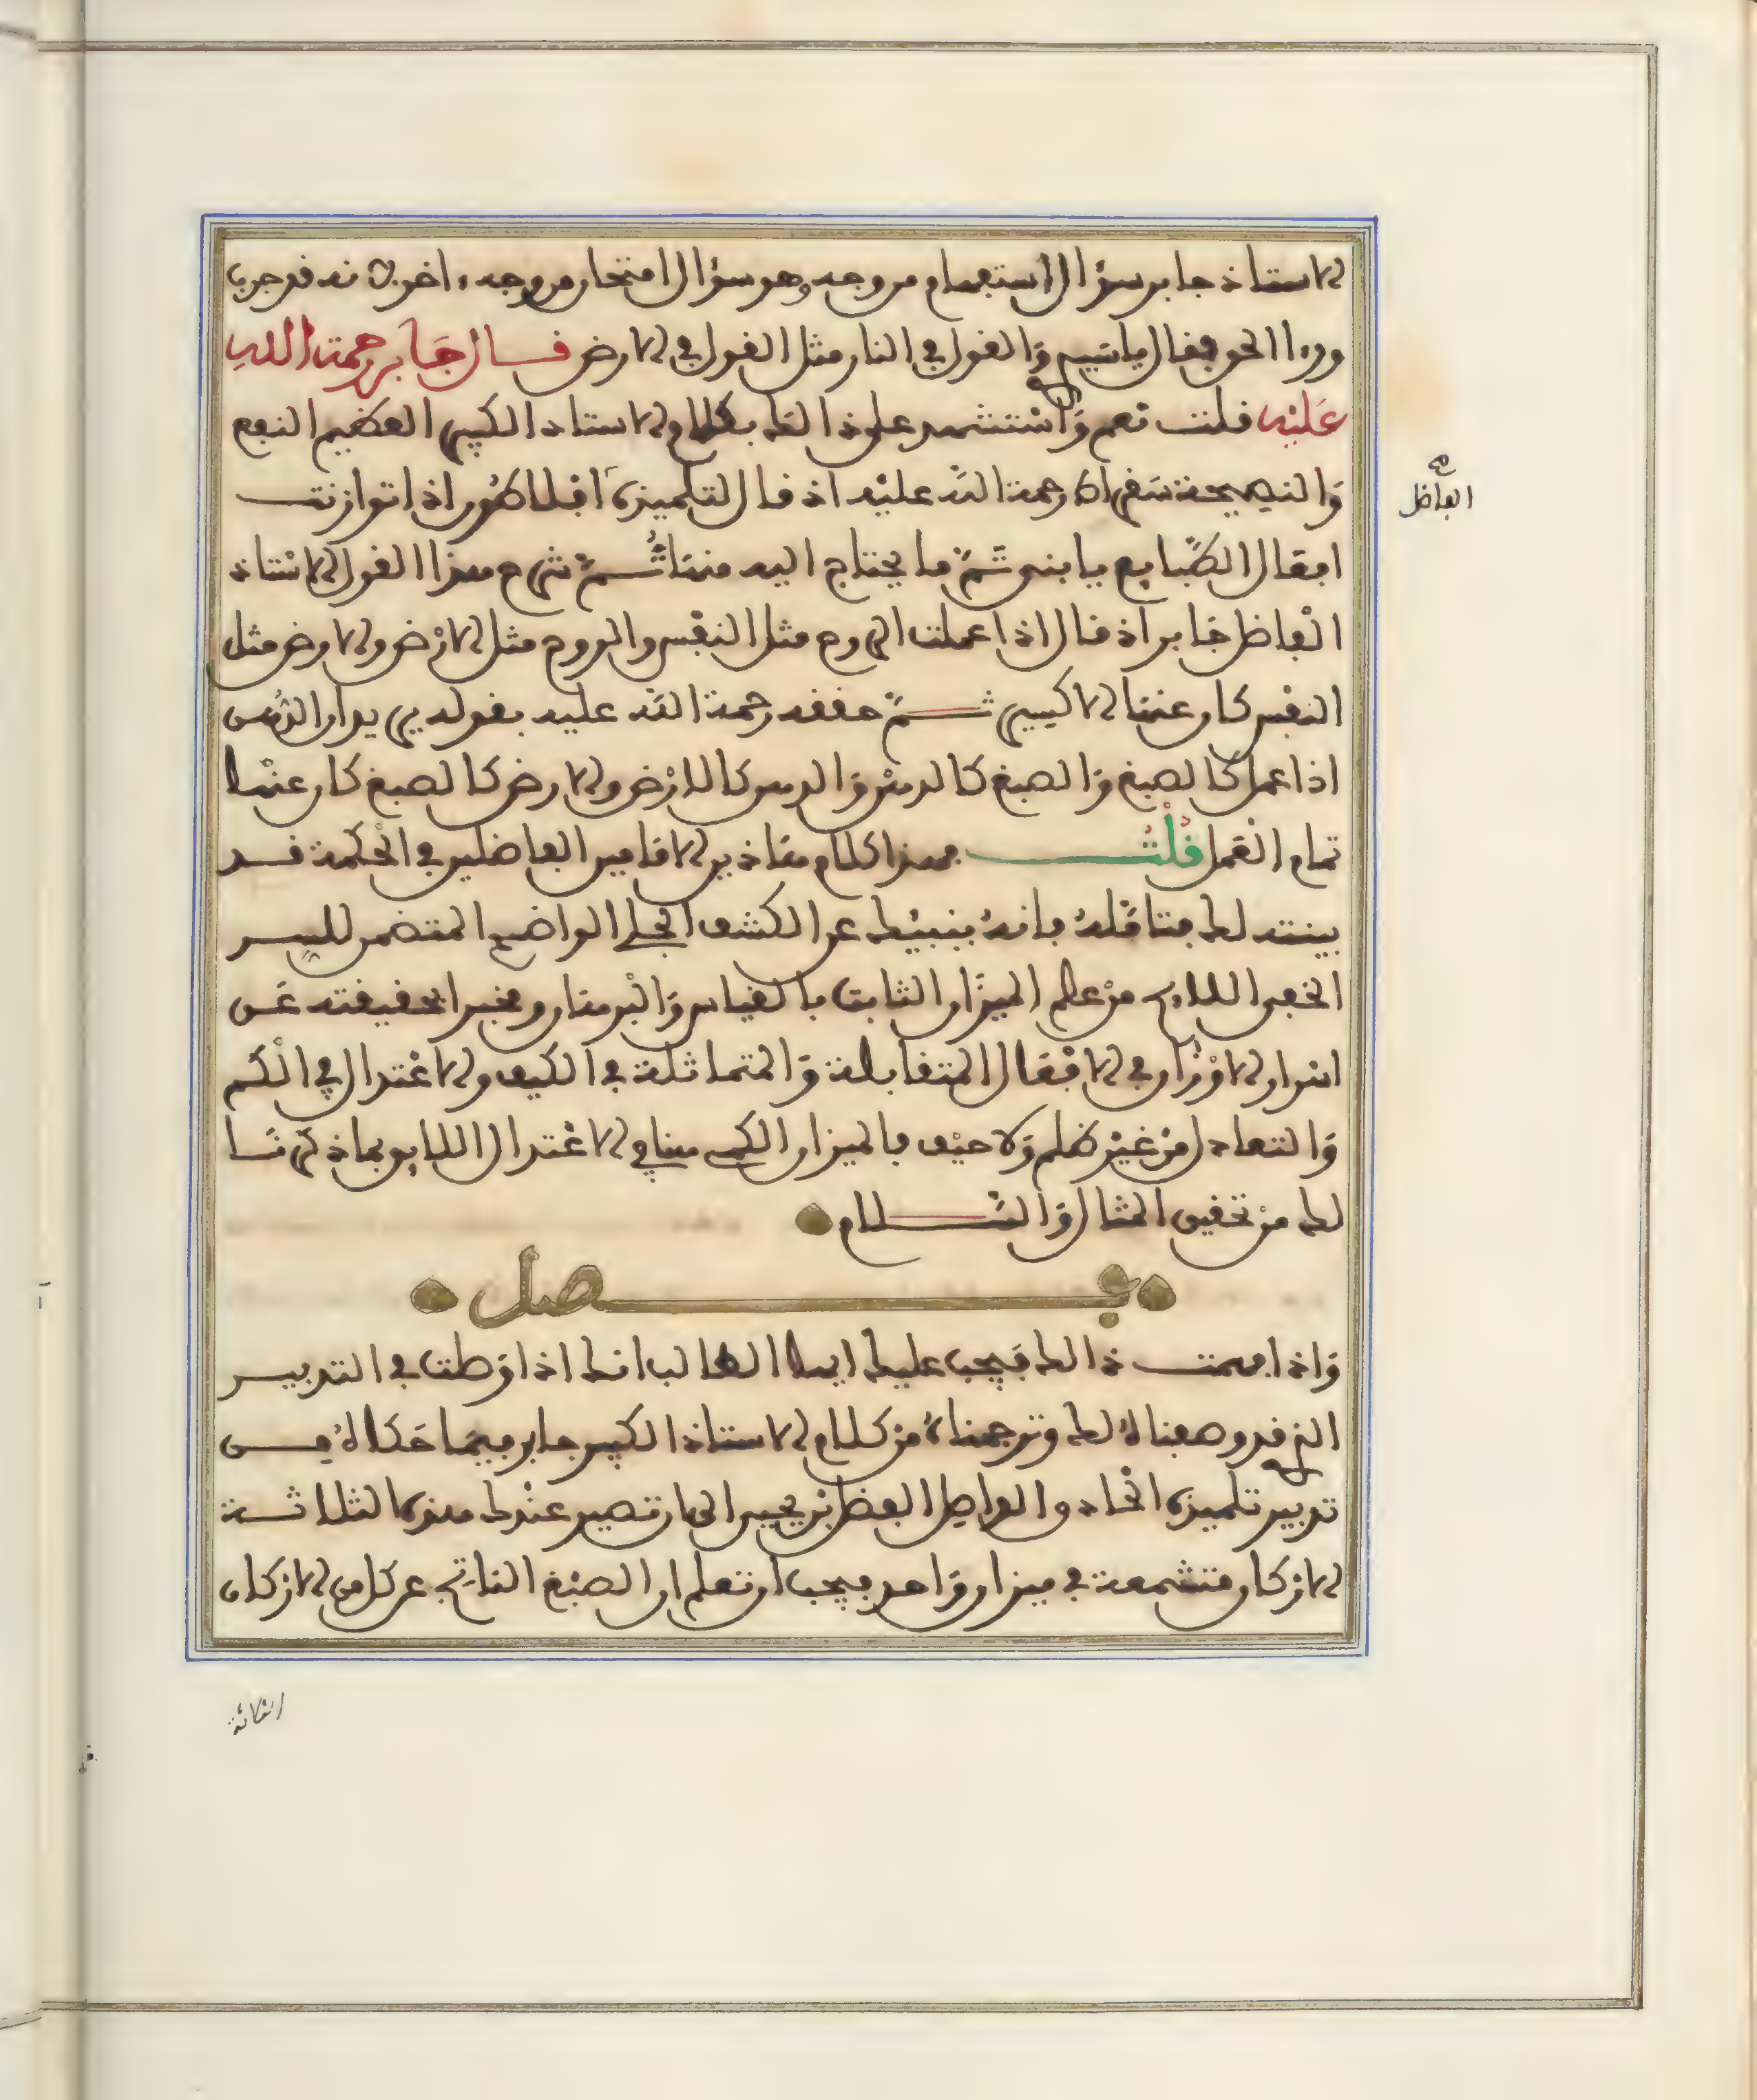 الاستاذ جابر سؤال استفهام من وجه وهو سؤال امتحان من وجه ءاخر لانه قد جرب
ورءا الحق فقال يا سيدي وَالقول في النار مثل القول في الارض قــال جَابر رحمة الله
عَليْه قلت نعم وَاسْتشهد على ذالك بكلام الاستاد الكبير العظيم النفع
وَالنصيحة سقراط رحمة الله عليْه اذ قال لتلميذه افلاطون اذا توازنت
افعال الطبايع يا بني تَمّ ما يحتاج اليه منهَا ثُــمّ شرح هذا القول الاسْتاذ
الفاضل جَابر اذ قال اذا عملت الروح مثل النفْس والروح مثل الارْض والارض مثل
النفس كان عنها الاكسير ثــمّ حققه رحمة الله عليه بقوله يريد ان الدُّهن
اذا عمل كالصبغ وَالصبغ كالدهن وَالدهن كالارْض والارض كالصبغ كان عنهَا
تمام الْعَمل قُلْتُــــ فهذا كلام هَاذين الامَامين الفاضلين في الحْكمة قــد
بينته لك فتاملهُ فانهُ ينبيْك عن الكشف الجلي الواضح المتضمن للســر
الخفي اللايح منْ علم الميزَان الثابت بالقياس وَالْبرهان ومخبرا بحقيقته عَـن
اسْرار الاوْزَان في الافْعال المتقابلة وَالمتماثلة في الكيف والاعْتدال في الْكم
وَالتعادل منْ غيْر ظلم وَلا حيْف بالميزان الكمي هاهي الاعْتدال اللايق بما ذكرنَــا
لك منْ تحقيق المثال وَالسَّــــلام
فـــــــصل
وَاذا فهمت ذالك فيجب عليك ايها الطالب انك اذا وَصلت في التدبيــر
الذي قد وصفناهُ لك وترجمناهُ منْ كلام الاستاذ الكبير جابر فيمَا حَكَاهُ مــن
تدبير تلميذه الحْاذق والواصل الفضل بْن يحيى الى ان تصير عنْدك هذه الثلاثــة
الاركان متشمعة في ميزان وَاحد فيجب ان تعلم ان الصبْغ الناتج عن كل من الاركان
الفاضل
الثلاثة